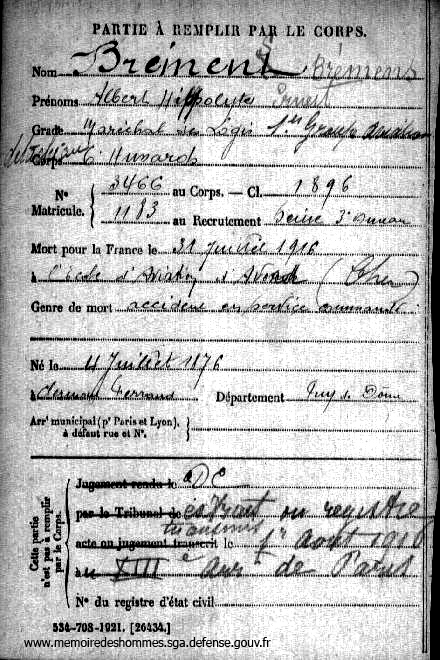 PARTIE À REMPLIR PAR LE CORPS.
Nom Brément Bréments
Prénoms Albert Hippolyte Ernest
Grade Maréchal des Logis 1er Groupe Aviation
Corps 6e Hussards
N° Matricule. 3466 au Corps. — Cl. 1896
1183 au Recrutement Seine 3e Bureau
Mort pour la France le 31 Juillet 1916
à l'école d'Aviation d'Avord (Cher)
Genre de mort accident en service commandé
Né le 4 Juillet 1876
à Clermont Ferrand Département Puy de Dôme
Arrt municipal (pr Paris et Lyon), à défaut rue et N°.
Cette partie n'est pas à remplir par le Corps.
Jugement rendu le
par le Tribunal de extrait du registre
transmis
acte ou jugement transcrit le 1er août 1916
au XIIIe arrt de Paris
N° du registre d'état civil
534-708-1921. [26434.]
www.memoiredeshommes.sga.defense.gouv.fr